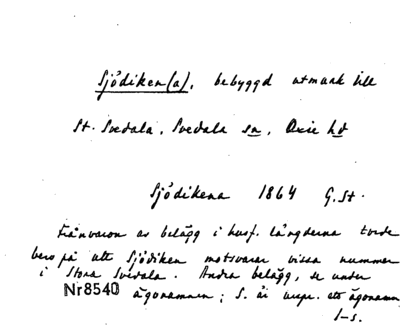 Sjödiken(a), bebyggd utmark till
St. Svedala, Svedala sn, Oxie hd
Sjödikena 1864 G.St.
Frånvaron av belägg i husf. längderna torde
bero på att Sjödiken motsvarar vissa nummer
i Stora Svedala. Andra belägg, se under
Nr8540 ägonamnen; S. är urspr. ett ägonamn
I-s.